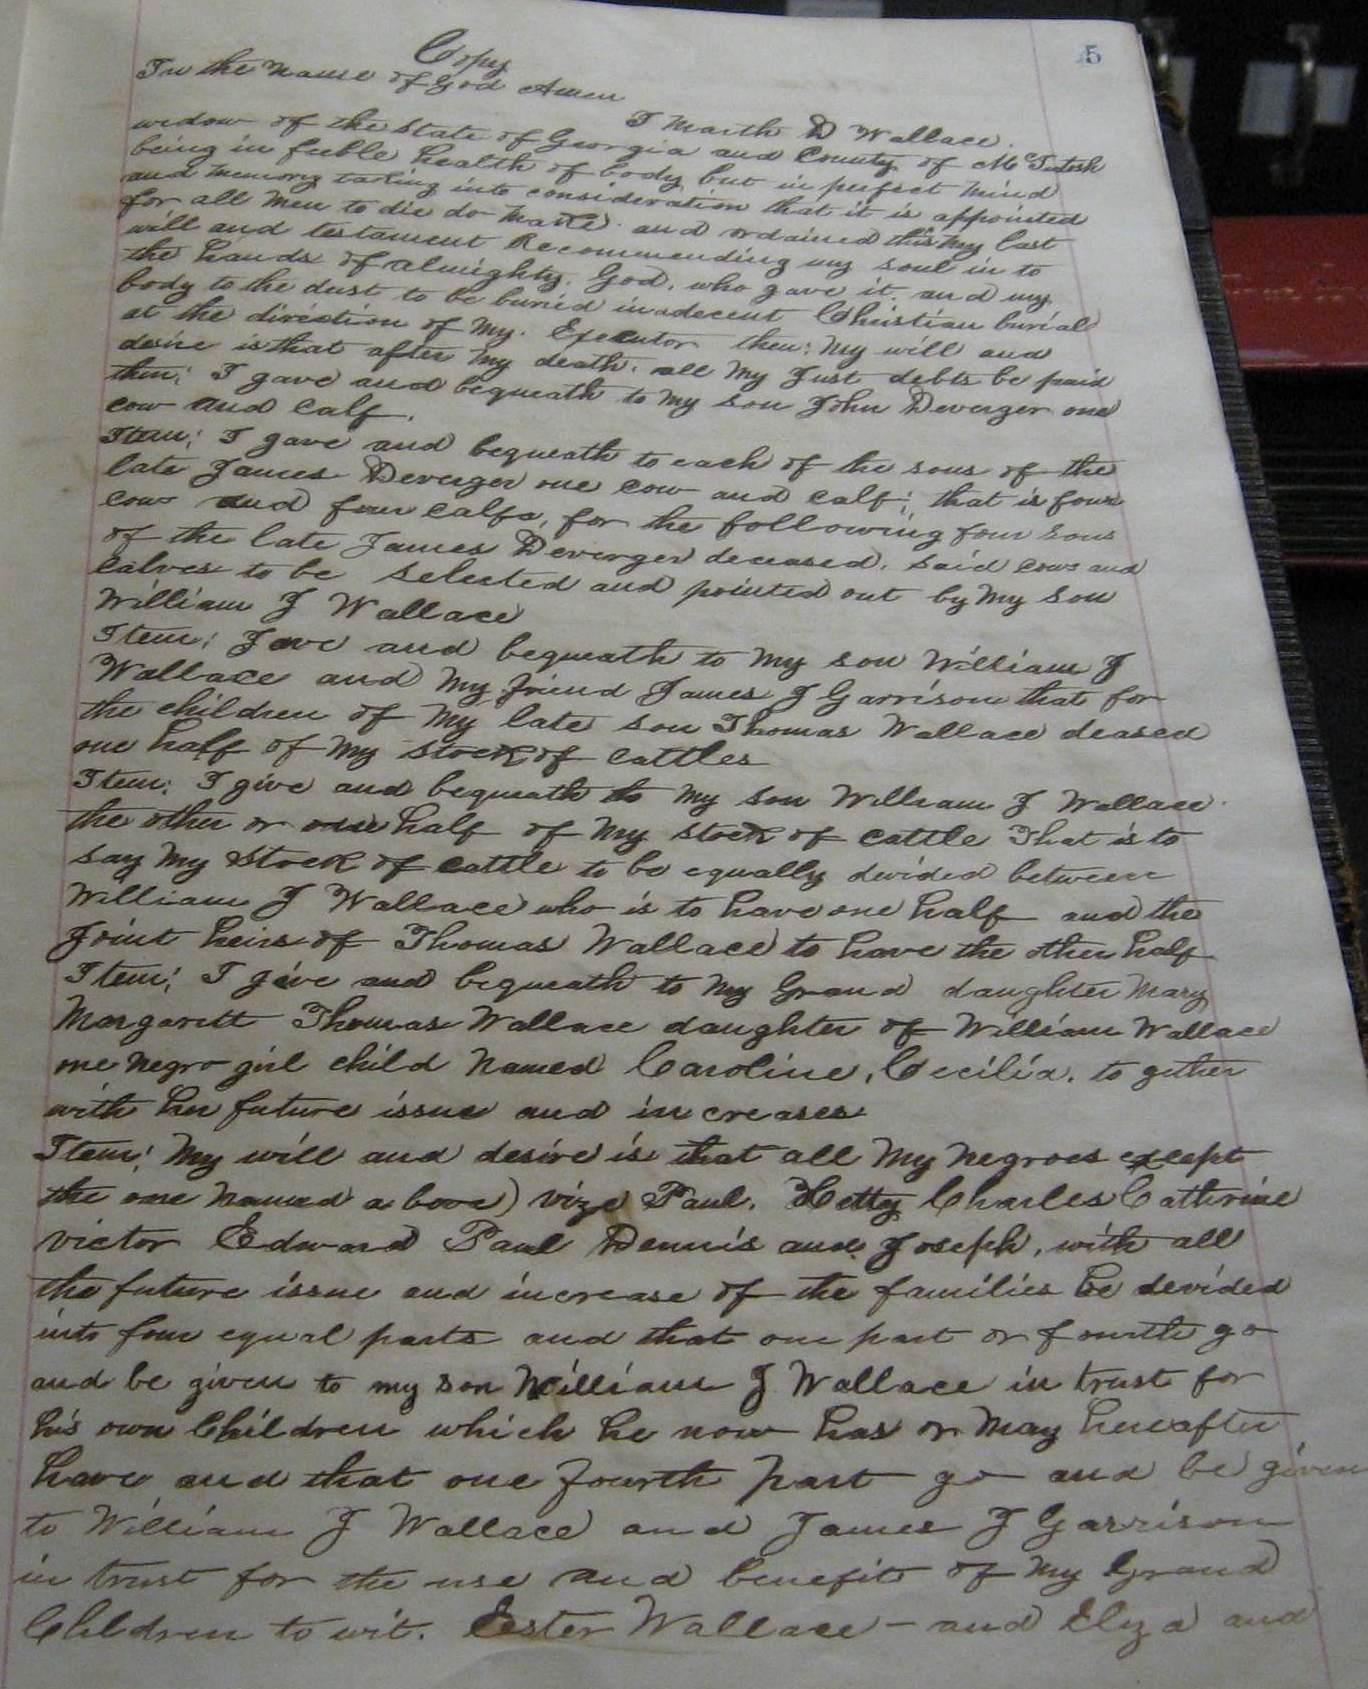 5
Copy
In the name of God Amen
I Marth D Wallace.
widow of the State of Georgia and County of McIntosh
being in feeble health of body but in perfect mind
and memory taking into consideration that it is appointed
for all men to die do make and ordained this my last
will and testament Recommending my soul in to
the hands of almighty God, who gave it. and my
body to the dust to be buried in a decent Christian burial
at the direction of my. Executor then: my will and
desire is that after my death. all my Just debts be paid
then: I gave and bequeath to my son John Deverger one
cow and calf.
Item: I gave and bequeath to each of the sons of the
late James Deverger one cow and calf; that is four
cow and four calfs, for the following four sons
of the late James Deverger deceased. said cows and
calves to be selected and pointed out by my son
William J Wallace
Item: Gave and bequeath to my son William J
Wallace and my friend James J Garrison that for
the children of my late son Thomas Wallace deased
one half of my stock of cattles
Item: I give and bequeath to my son William J Wallace
the other or one half of my stock of cattle That is to
say my stock of cattle to be equally devided between
William J Wallace who is to have one half and the
Joint heirs of Thomas Wallace to have the other half
Item: I give and bequeath to my Grand daughter Mary
Margarett Thomas Wallace daughter of William Wallace
one negro girl child named Caroline, Cecilia, to gether
with her future issue and in creases
Item: My will and desire is that all my negroes except
the one named a bove) vize Paul. Hetty Charles Catherine
victor Edward Paul Dennis and Joseph, with all
the future issue and increase of the families be devided
into four equal parts and that one part or fourth go
and be given to my son William J Wallace in trust for
his own Children which he now has or may hereafter
have and that one fourth part go and be given
to William J Wallace and James J Garrison
in trust for the use and benefit of my Grand
Children to wit. Ester Wallace - and Eliza and